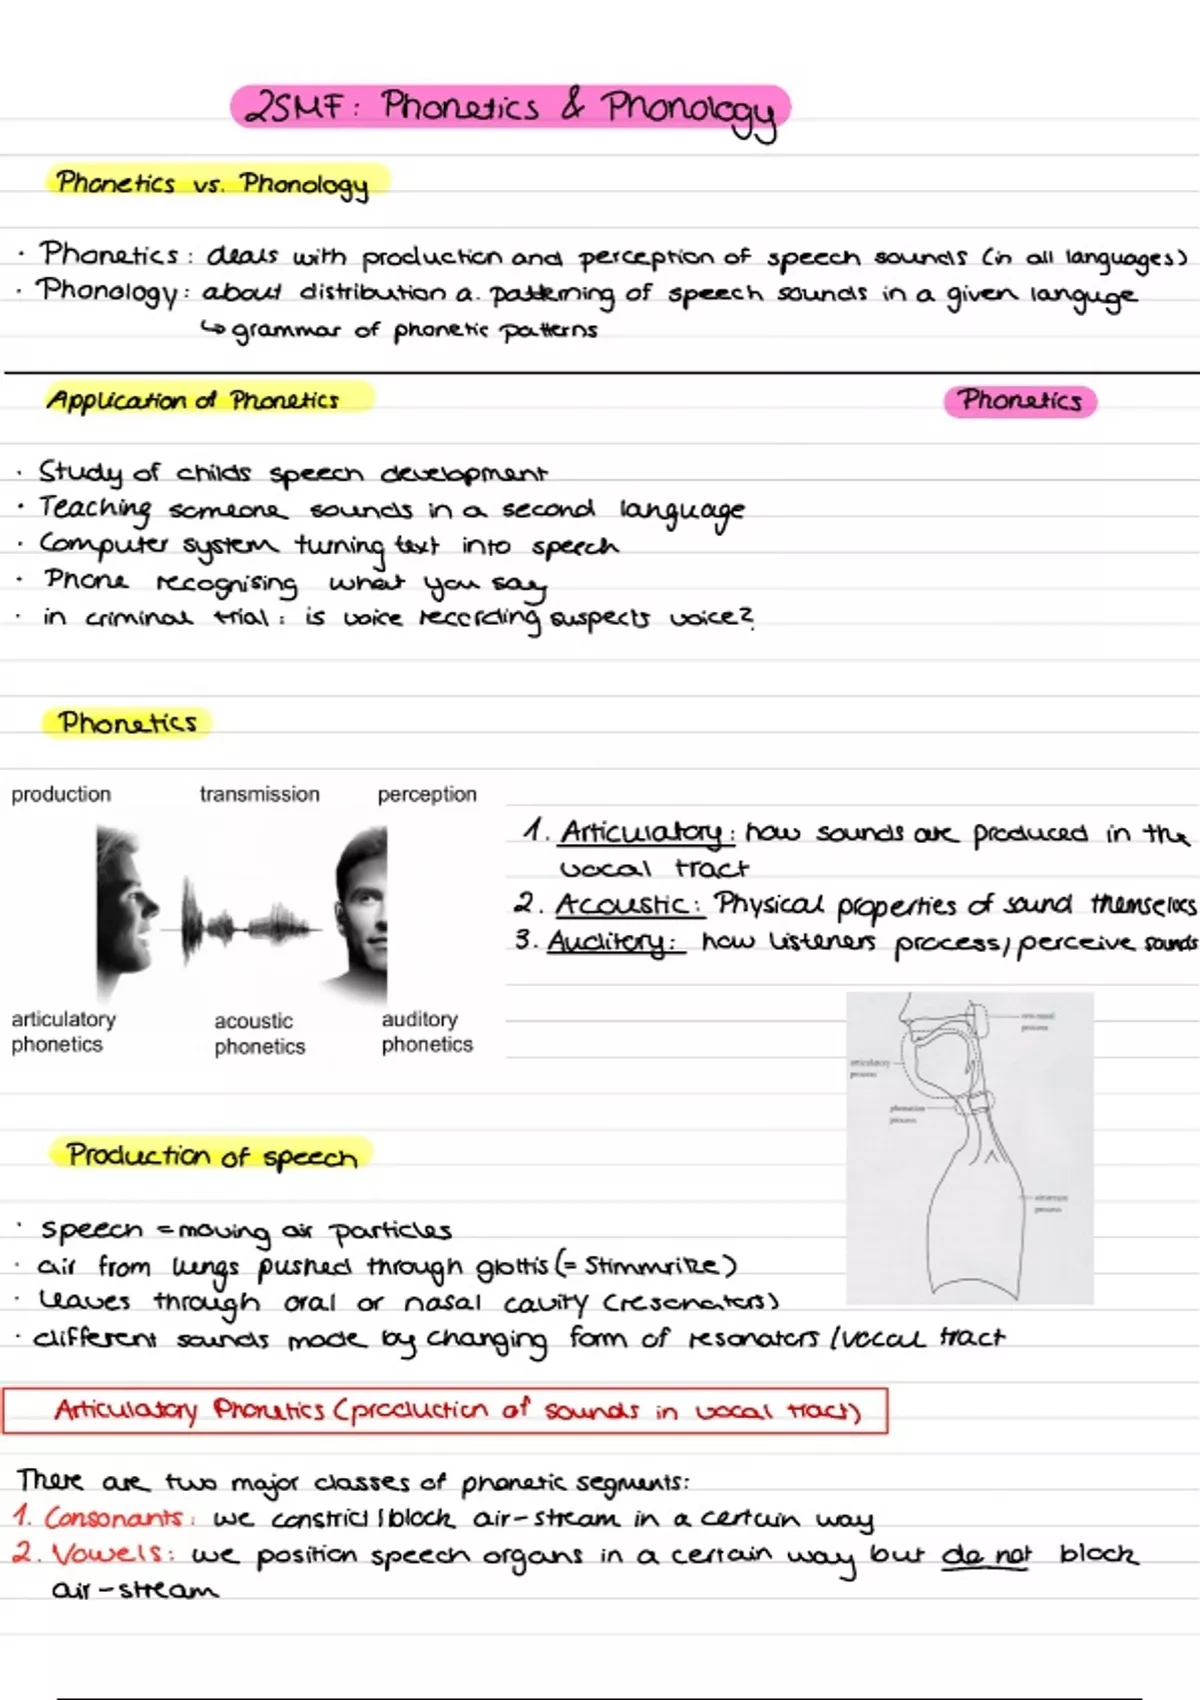 2SMF: Phonetics & Phonology
Phonetics vs. Phonology
· Phonetics: deals with production and perception of speech sounds (in all languages)
· Phonology: about distribution a. patterning of speech sounds in a given languge
↳ grammar of phonetic patterns
Application of Phonetics
Phonetics
· Study of childs speech development
· Teaching someone sounds in a second language
· Computer system turning text into speech
· Phone recognising what you say
· in criminal trial: is voice recording suspects voice?
Phonetics
production transmission perception
1. Articulatory: how sounds are produced in the
vocal tract
2. Acoustic: Physical properties of sound themselves
3. Auditory: how listeners process/perceive sounds
articulatory
phonetics
acoustic
phonetics
auditory
phonetics
oro-nasal
process
articulatory
process
phonation
process
airstream
process
Production of speech
· speech = moving air particles
· air from lungs pushed through glottis (= Stimmritze)
· leaves through oral or nasal cavity (resonators)
· different sounds made by changing form of resonators / vocal tract
Articulatory Phonetics (production of sounds in vocal tract)
There are two major classes of phonetic segments:
1. Consonants: we constrict / block air-stream in a certain way
2. Vowels: we position speech organs in a certain way but do not block
air-stream